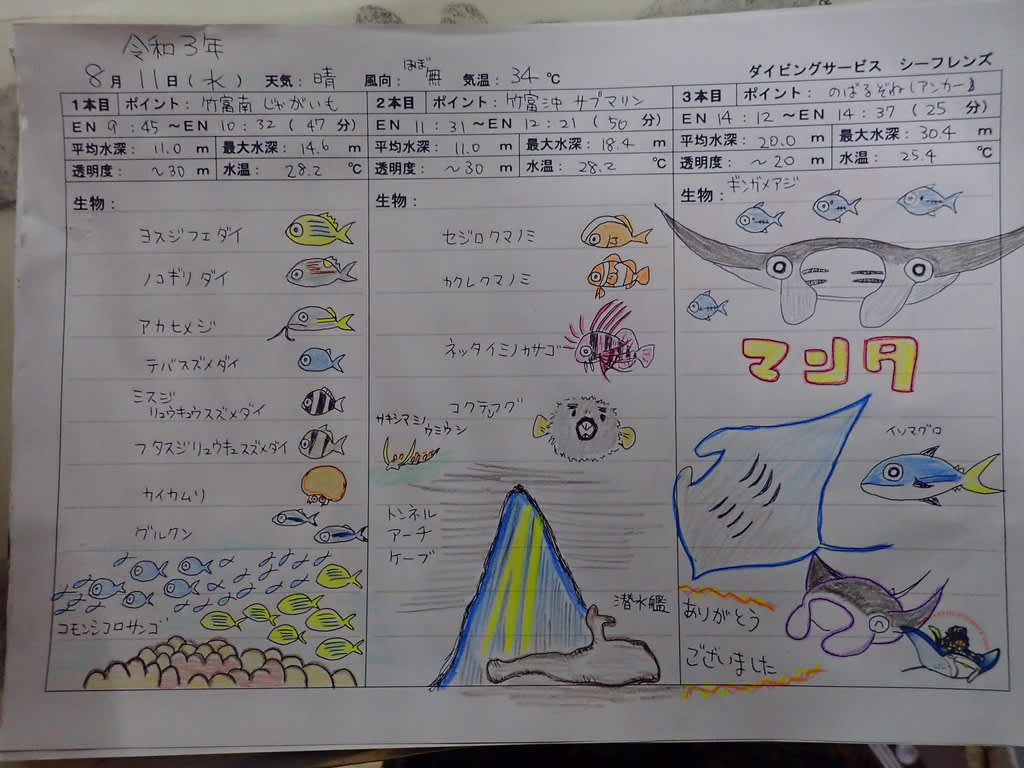 令和3年
8月 11日(水) 天気:晴 風向:ほぼ無 気温:34℃
ダイビングサービス シーフレンズ
1本目 ポイント:竹富南 じゃがいも
EN 9:45~EN 10:32(47分)
平均水深:11.0 m 最大水深:14.6 m
透明度:~30 m 水温:28.2 ℃
生物:
ヨスジフエダイ
ノコギリダイ
アカヒメジ
デバスズメダイ
ミスジ
リュウキュウスズメダイ
フタスジリュウキュウスズメダイ
カイカムリ
グルクン
コモンシコロサンゴ
2本目 ポイント:竹富沖 サブマリン
EN 11:31~EN 12:21(50分)
平均水深:11.0 m 最大水深:18.4 m
透明度:~30 m 水温:28.2 ℃
生物:
セジロクマノミ
カクレクマノミ
ネッタイミノカサゴ
コクテンフグ
サキシマミノ
ウミウシ
トンネル
アーチ
ケーブ
潜水艦
3本目 ポイント:のばるぞね(アンカー)
EN 14:12~EN 14:37(25分)
平均水深:20.0 m 最大水深:30.4 m
透明度:~20 m 水温:25.4 ℃
生物:
ギンガメアジ
マンタ
イソマグロ
ありがとう
ございました